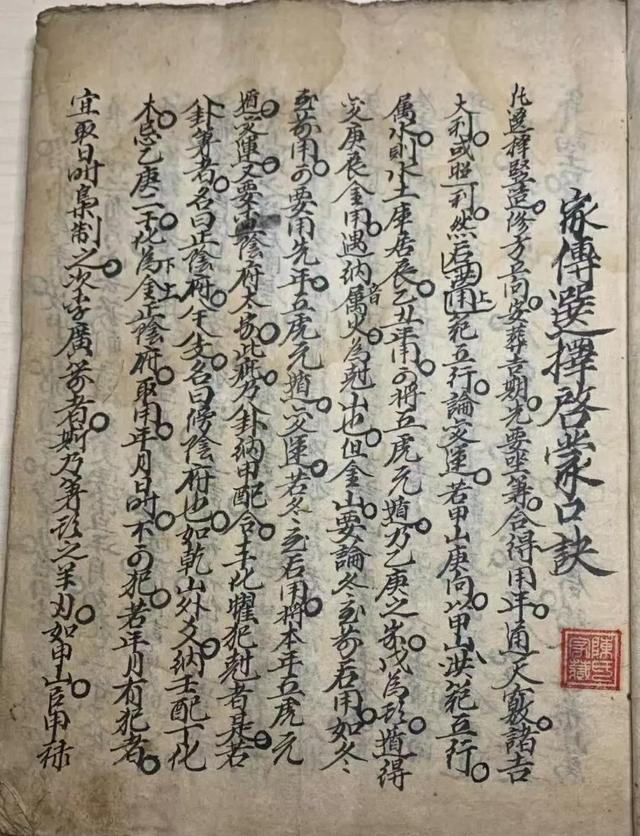 家傳選擇啓蒙口訣
凡選擇竪造修方立向安葬吉期先要坐算合得用年通天竅諸吉
大利或照利然后要用上範五行論变運若甲山庚向以甲山洪範五行
属水則水土庫居辰乙丑年用可將五虎元遁乃乙庚之歲戊為頭遁得
变庚辰金用遇納音属火為尅山也但金山要論冬至前后用如冬
至前用可要用先年五虎元遁变運若冬至后用將本年五虎元
遁变運又要 陰府太歲此乃卦納甲配合干化曜犯尅者是若
卦算者名曰正陰府 名曰傍陰府也如乾山外爻納壬配丁化
木忌乙庚二干化為金正陰府取用年月日時不可犯若年月有犯者
宜取日時梟制之次李廣箭者斯乃箭頭之羊刃如甲山臣甲祿
陳氏家藏